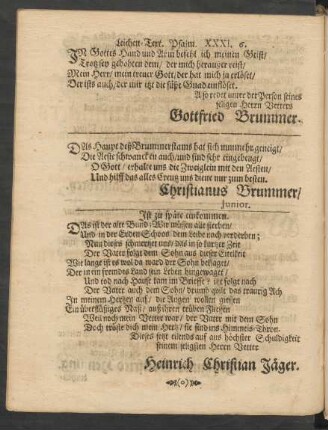 Leichen-Text. Psalm. XXXI, 6.
IN Gottes Hand und Arm befehl ich meinen Geist/
Trotz sey gebothen dem/ der mich heraußer reist/
Mein Herr/ mein treuer Gott/ der hat mich ja erlöset/
Der ists auch/ der mir itzt die süsse Gnad einflöset.
Also redet unter der Person seines
seligen Herrn Vettern
Gottfried Brummer.
DAs Haupt deß Brummerstams hat sich nunmehr geneigt/
Die Aeste schwancken auch/ und sind sehr eingebeugt/
O Gott/ erhalt uns die Zweiglein mit den Aesten/
Und hilff das alles Creutz uns diene nur zum besten.
Christianus Brummer/
Junior.
Ist zu späte einkommen.
DAs ist der alte Bund: Wir müssen alle sterben/
Und in der Erden-Schoos dem Leibe nach verderben;
Nun dieses schmertzet uns/ das in so kurtzer Zeit
Der Vater folgt dem Sohn aus dieser Eitelkeit
Wie lange ist es wol da ward der Sohn beklaget
Der in em frembdes Land sein Leben hingewaget/
Und tod nach Hause kam im Brieffe? itzt folget nach
Der Vater auch dem Sohn/ drumb geht das traurig Ach
In meinem Hertzen auf/ die Augen wollen giessen
Ein überflüssiges Naß/ auß ihren trüben Flüssen
Weil noch mein Vetter war/ der Vater mit dem Sohn
Doch tröste dich mein Hertz/ sie sind ins Himmels-Thron.
Dieses setzt eilends auf aus höchster Schuldigkeit
seinem seligsten Herrn Vetter
Heinrich Christian Jäger.
(o)